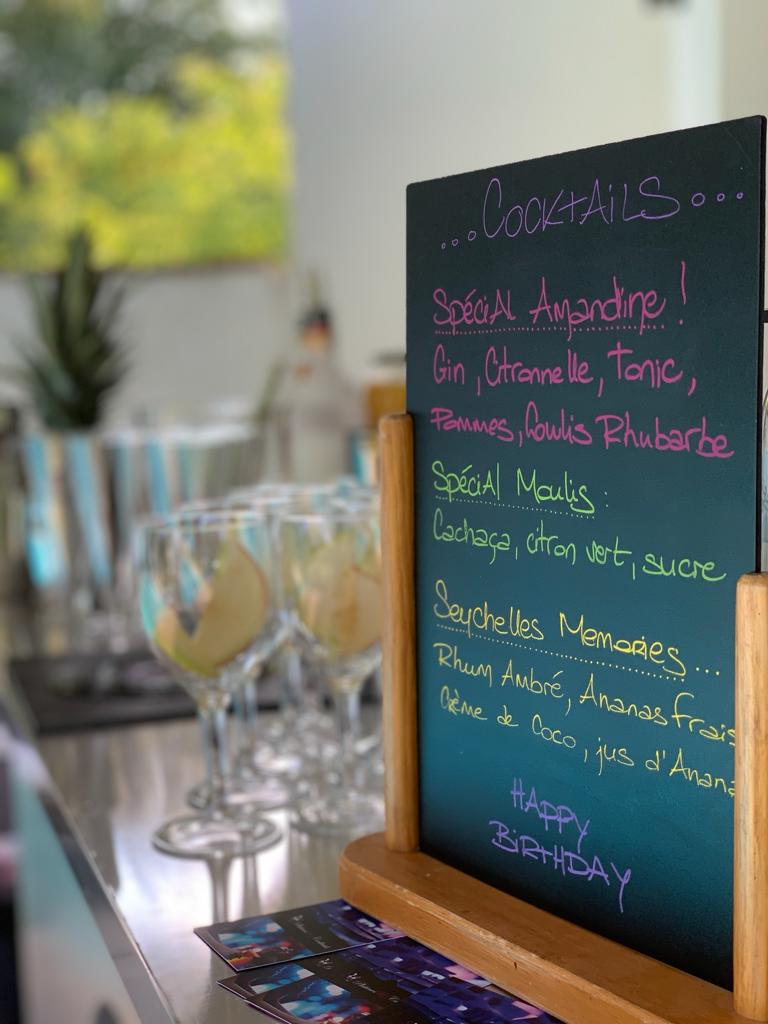 ...COCKTAILS...
Spécial Amandine !
Gin, Citronnelle, Tonic,
Pommes, Coulis Rhubarbe
Spécial Moulis :
Cachaça, citron vert, sucre
Seychelles Memories...
Rhum Ambré, Ananas frais
Crème de Coco, jus d'Anana
HAPPY
BIRTHDAY